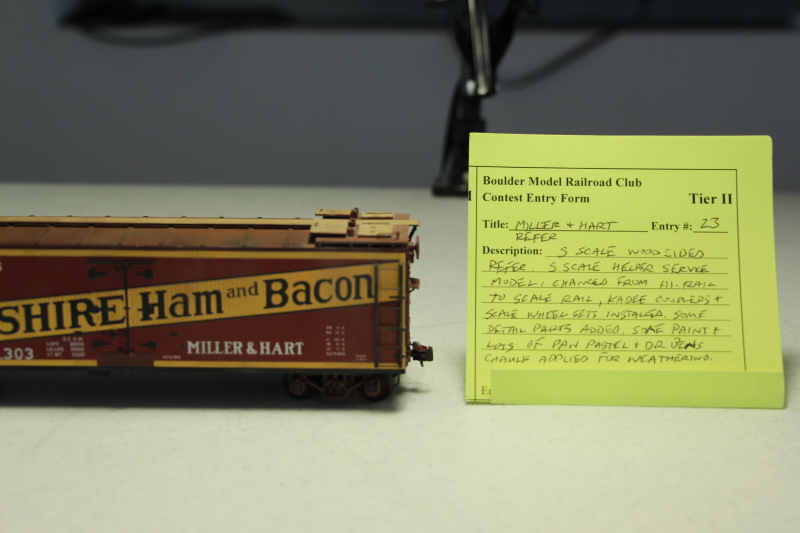 SHIRE Ham and Bacon
303
MILLER & HART
Boulder Model Railroad Club
Contest Entry Form Tier II
Title: MILLER & HART Entry #: 23
REFER
Description: S SCALE WOOD SIDED
REFER. S SCALE HELPER SERVICE
MODEL. CHANGED FROM HI-RAIL
TO SCALE RAIL, KADEE COUPLERS &
SCALE WHEEL SETS INSTALLED. SOME
DETAIL PARTS ADDED. SOME PAINT &
LOTS OF PAN PASTEL & DR. BENS
CHAULK APPLIED FOR WEATHERING.